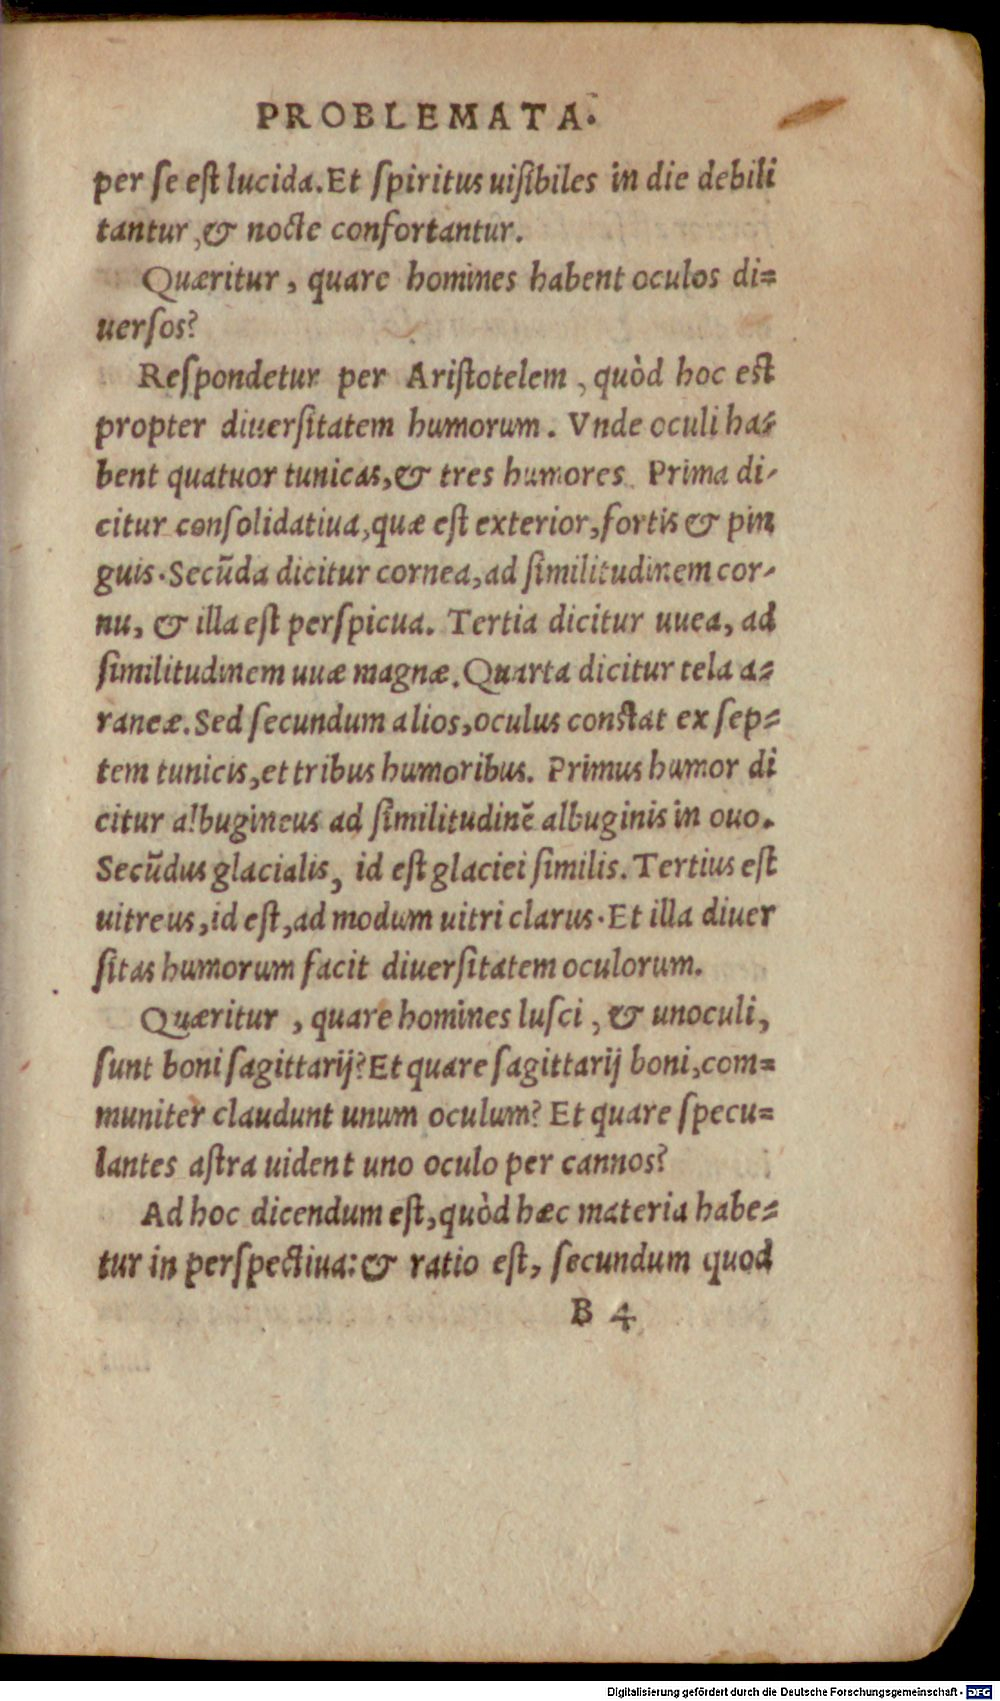 PROBLEMATA.
per ſe eſt lucida. Et ſpiritus uiſibiles in die debili
tantur, & nocte confortantur.
Quæritur, quare homines habent oculos di=
uerſos?
Reſpondetur per Ariſtotelem, quòd hoc eſt
propter diuerſitatem humorum. Vnde oculi ha=
bent quatuor tunicas, & tres humores. Prima di-
citur conſolidatiua, quæ eſt exterior, fortis & pin
guis. Secũda dicitur cornea, ad ſimilitudinem cor-
nu, & illa eſt perſpicua. Tertia dicitur uuea, ad
ſimilitudinem uuæ magnæ. Quarta dicitur tela a=
raneæ. Sed ſecundum alios, oculus conſtat ex ſep=
tem tunicis, et tribus humoribus. Primus humor di
citur albugineus ad ſimilitudinẽ albuginis in ouo.
Secũdus glacialis, id eſt glaciei ſimilis. Tertius eſt
uitreus, id eſt, ad modum uitri clarus. Et illa diuer
ſitas humorum facit diuerſitatem oculorum.
Quæritur, quare homines luſci, & unoculi,
ſunt boni ſagittarij? Et quare ſagittarij boni, com=
muniter claudunt unum oculum? Et quare ſpecu=
lantes aſtra uident uno oculo per cannos?
Ad hoc dicendum eſt, quòd hæc materia habe=
tur in perſpectiua: & ratio eſt, ſecundum quod
B 4
Digitalisierung gefördert durch die Deutsche Forschungsgemeinschaft - DFG